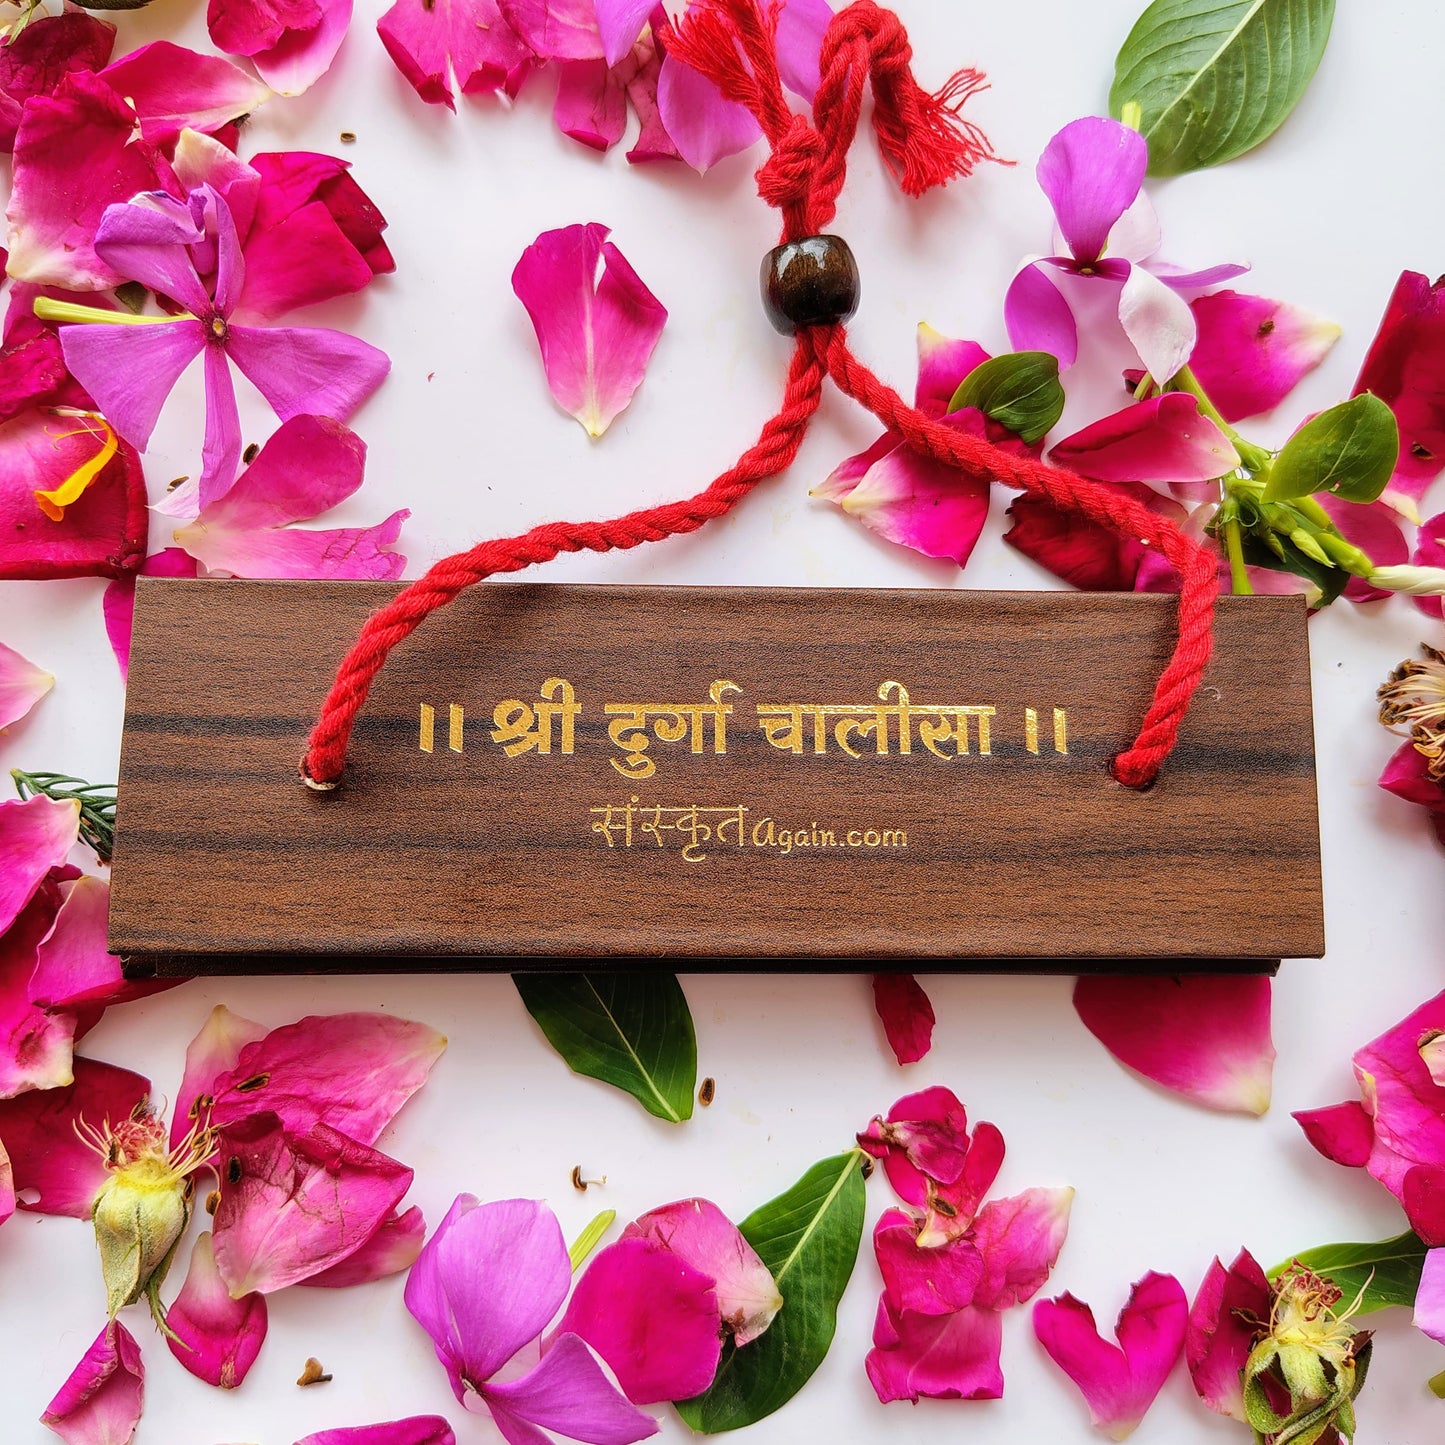 ॥ श्री दुर्गा चालीसा ॥
संस्कृतAgain.com